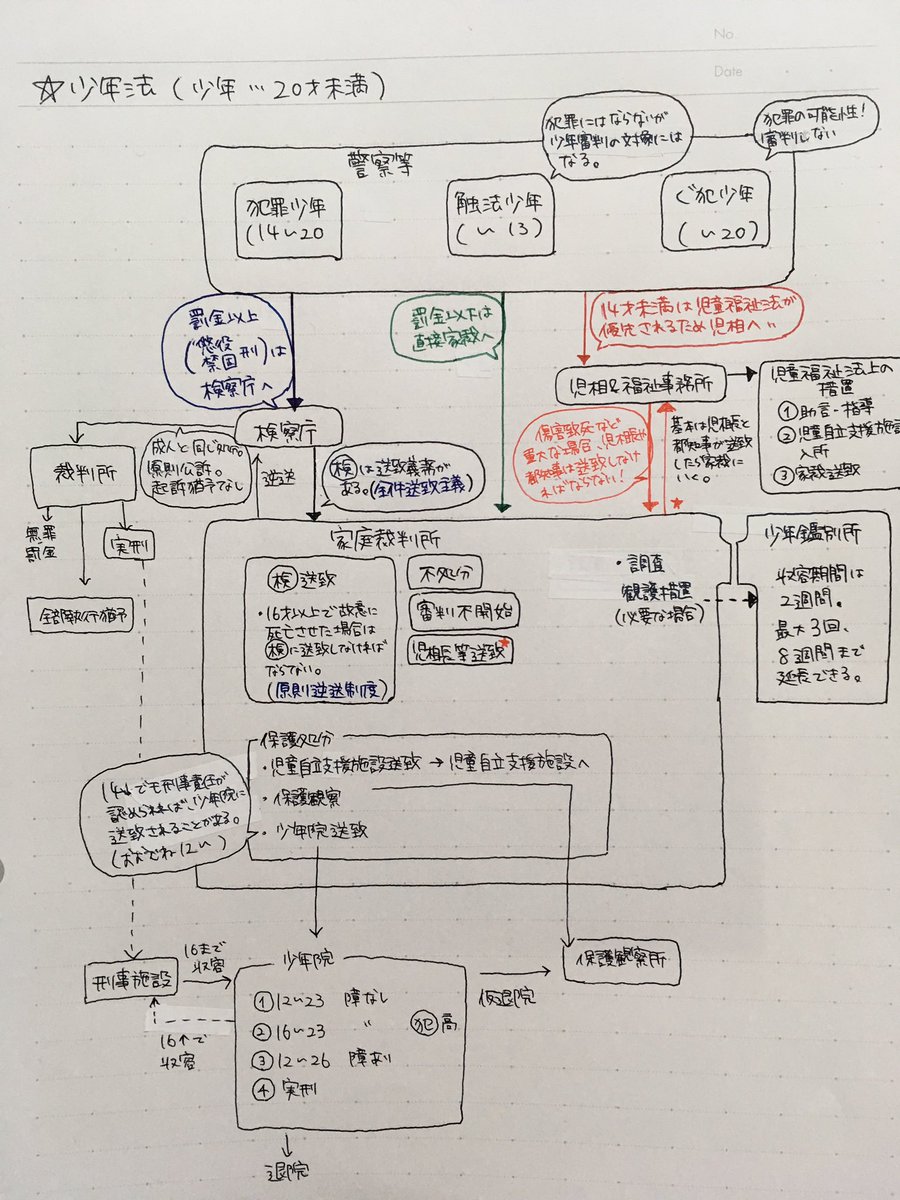 No.
Date
☆少年法(少年…20才未満)
犯罪にはならないが
少年審判の対象には
なる。
犯罪の可能性!
審判しない
警察等
犯罪少年
(14〜20
触法少年
(〜13)
ぐ犯少年
(〜20)
罰金以上
(懲役
禁固刑)は
検察庁へ
罰金以下は
直接家裁へ
14才未満は児童福祉法が
優先されるため児相へ..
児相&福祉事務所
児童福祉法上の
措置
①助言・指導
②児童自立支援施設
入所
③家裁送致
検察庁
成人と同じ処分。
原則公訴。
起訴猶予なし
逆送
検は送致義務が
ある。(全件送致主義)
傷害致死など
重大な場合、児相長や
都知事は送致しなけ
ればならない!
基本は児相長と
都知事が送致
したら家裁に
いく。
★
裁判所
無罪
罰金
実刑
全部執行猶予
家庭裁判所
検送致
・16才以上で故意に
死亡させた場合は
検に送致しなければ
ならない。
(原則逆送制度)
不処分
審判不開始
児相長等送致★
・調査
観護措置
(必要な場合)
少年鑑別所
収容期間は
2週間。
最大3回、
8週間まで
延長できる。
保護処分
・児童自立支援施設送致→児童自立支援施設へ
・保護観察
・少年院送致
14↓でも刑事責任が
認められれば、少年院に
送致されることがある。
(おおむね12〜)
刑事施設
16まで
収容
16↑で
収容
少年院
①12〜23 障なし
②16〜23 〃 犯高
③12〜26 障あり
④実刑
仮退院
保護観察所
退院